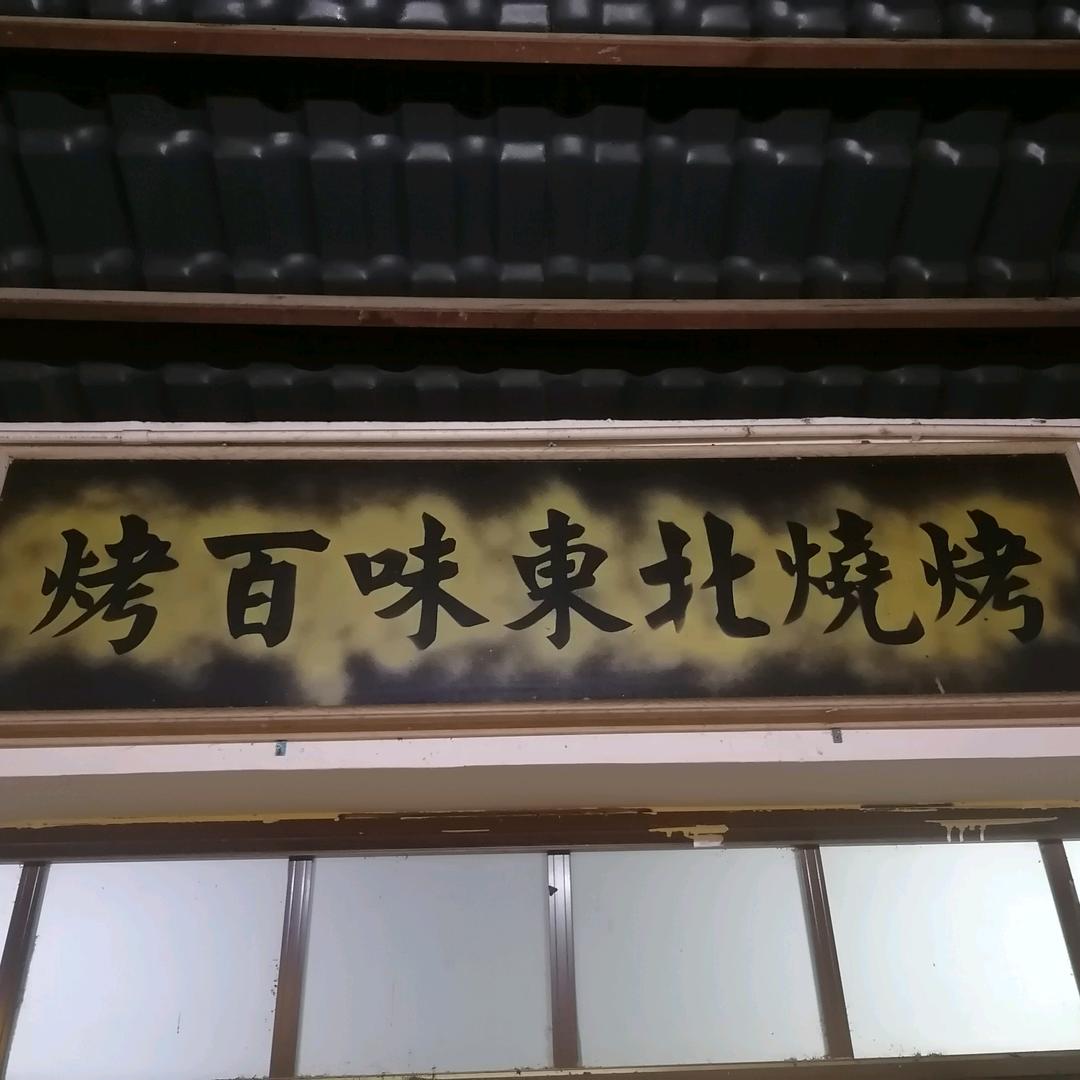 烤百味東北燒烤